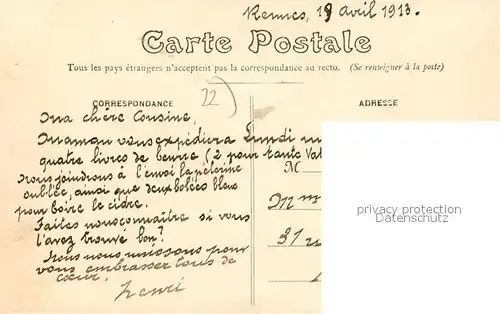 Rennes, 19 avril 1913.
Carte Postale
Tous les pays étrangers n'acceptent pas la correspondance au recto. (Se renseigner à la poste)
22
CORRESPONDANCE
ADRESSE
Ma chère Cousine,
Maman vous expédiera Lundi
quatre livres de beurre (2 pour tante
Nous joindrons à l'envoi la pèlerine
oubliée, ainsi que deux bolées bleus
pour boire le cidre.
Faites nous connaître si vous
l'avez trouvé bon?
Nous nous unissons pour
vous embrasser tous de
cœur.
Henri
M
Mm
31
privacy protection
Datenschutz